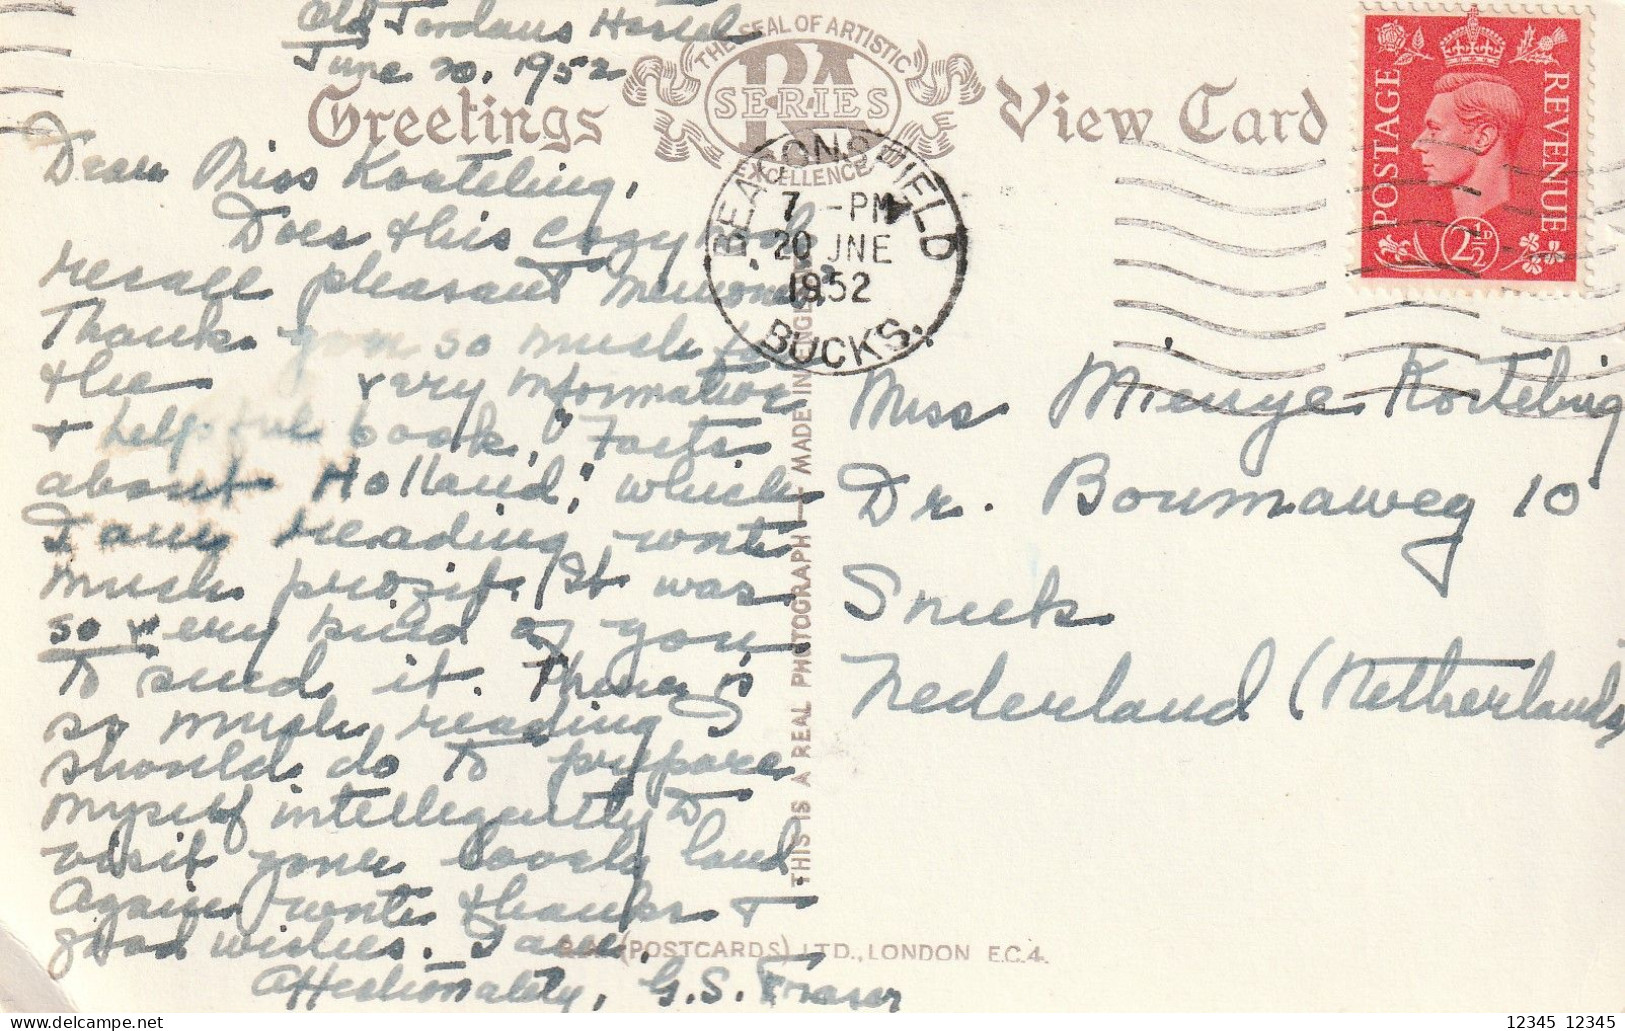 Old Jordans Hostel
June 20, 1952
THE SEAL OF ARTISTIC
RA
SERIES
EXCELLENCE
Greetings
View Card
POSTAGE
REVENUE
2½D
BEACONSFIELD
7 - PM
20 JNE
1952
BUCKS.
Dear Miss Koetebing,
Does this cozy nook
recall pleasant memories?
Thank you so much for
the very informative
+ helpful book, "Facts
about Holland," which
I am reading with
much profit. It was
so very kind of you
to send it. There is
so much reading I
should do to prepare
myself intellegently to
visit your lovely land
Again with thanks +
good wishes. I am,
Affectionately, G. S. Fraser
THIS IS A REAL PHOTOGRAPH - MADE IN ENGLAND
R.A. (POSTCARDS) LTD., LONDON E.C.4.
Miss Mienye Koetebing
Dr. Boumaweg 10
Sneek
Nederland (Netherlands
12345 12345